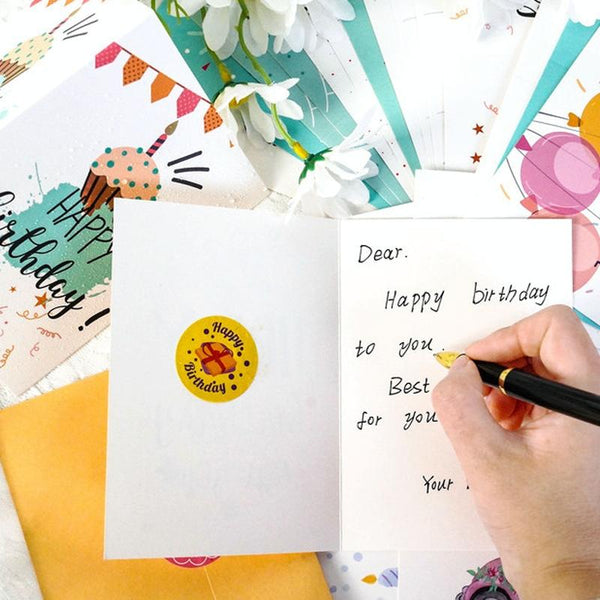 HAPPY
birthday!
Happy
Birthday
Dear.
Happy birthday
to you.
Best
for you
Your